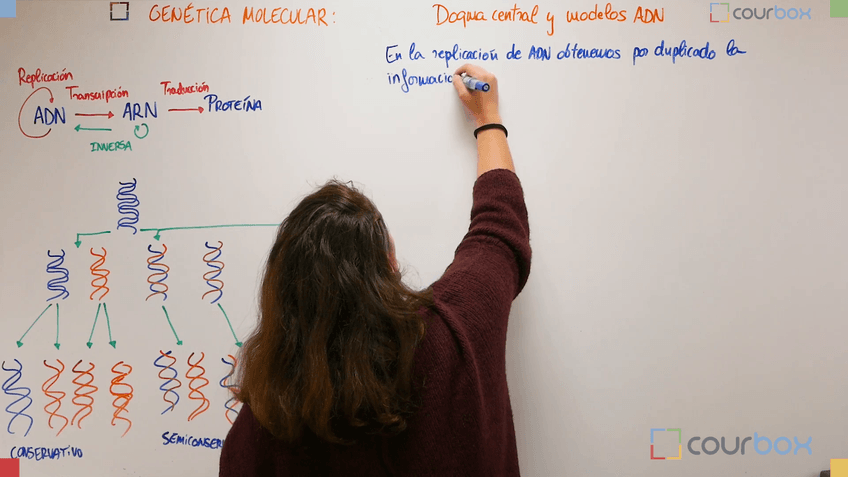 GENÉTICA MOLECULAR: Dogma central y modelos ADN
courbox
En la replicación de ADN obtenemos por duplicado la
informacio
Replicación
Transcripción
Traducción
ADN ARN PROTEÍNA
INVERSA
CONSERVATIVO
SEMICONSER
courbox